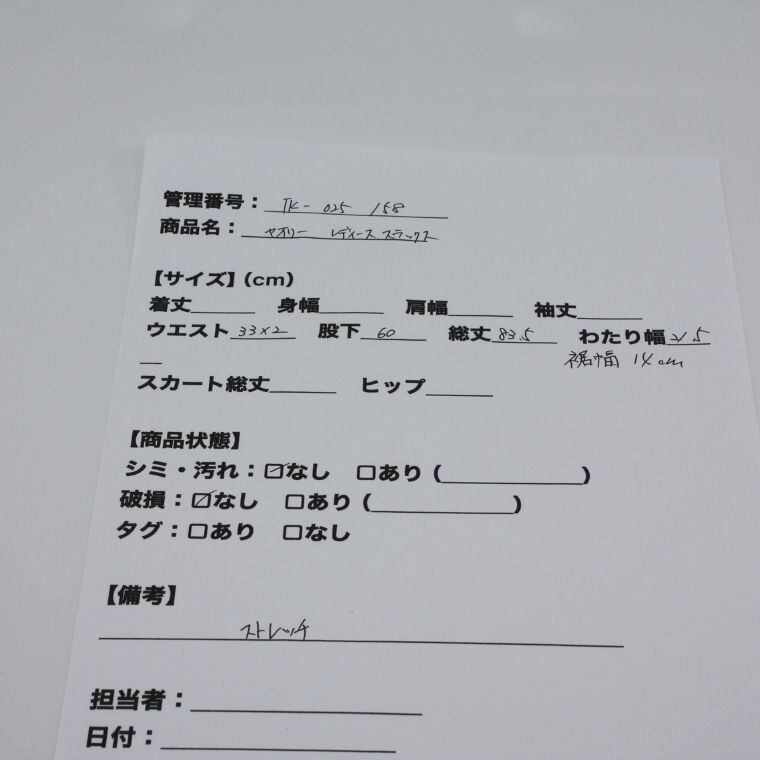 管理番号: TK- 025 158
商品名: セオリー レディース スラックス
【サイズ】(cm)
着丈 身幅 肩幅 袖丈
ウエスト 33×2 股下 60 総丈 83.5 わたり幅 21.5
裾幅 14cm
スカート総丈 ヒップ
【商品状態】
シミ・汚れ: ☑なし □あり ( )
破損: ☑なし □あり ( )
タグ: □あり □なし
【備考】
ストレッチ
担当者:
日付: